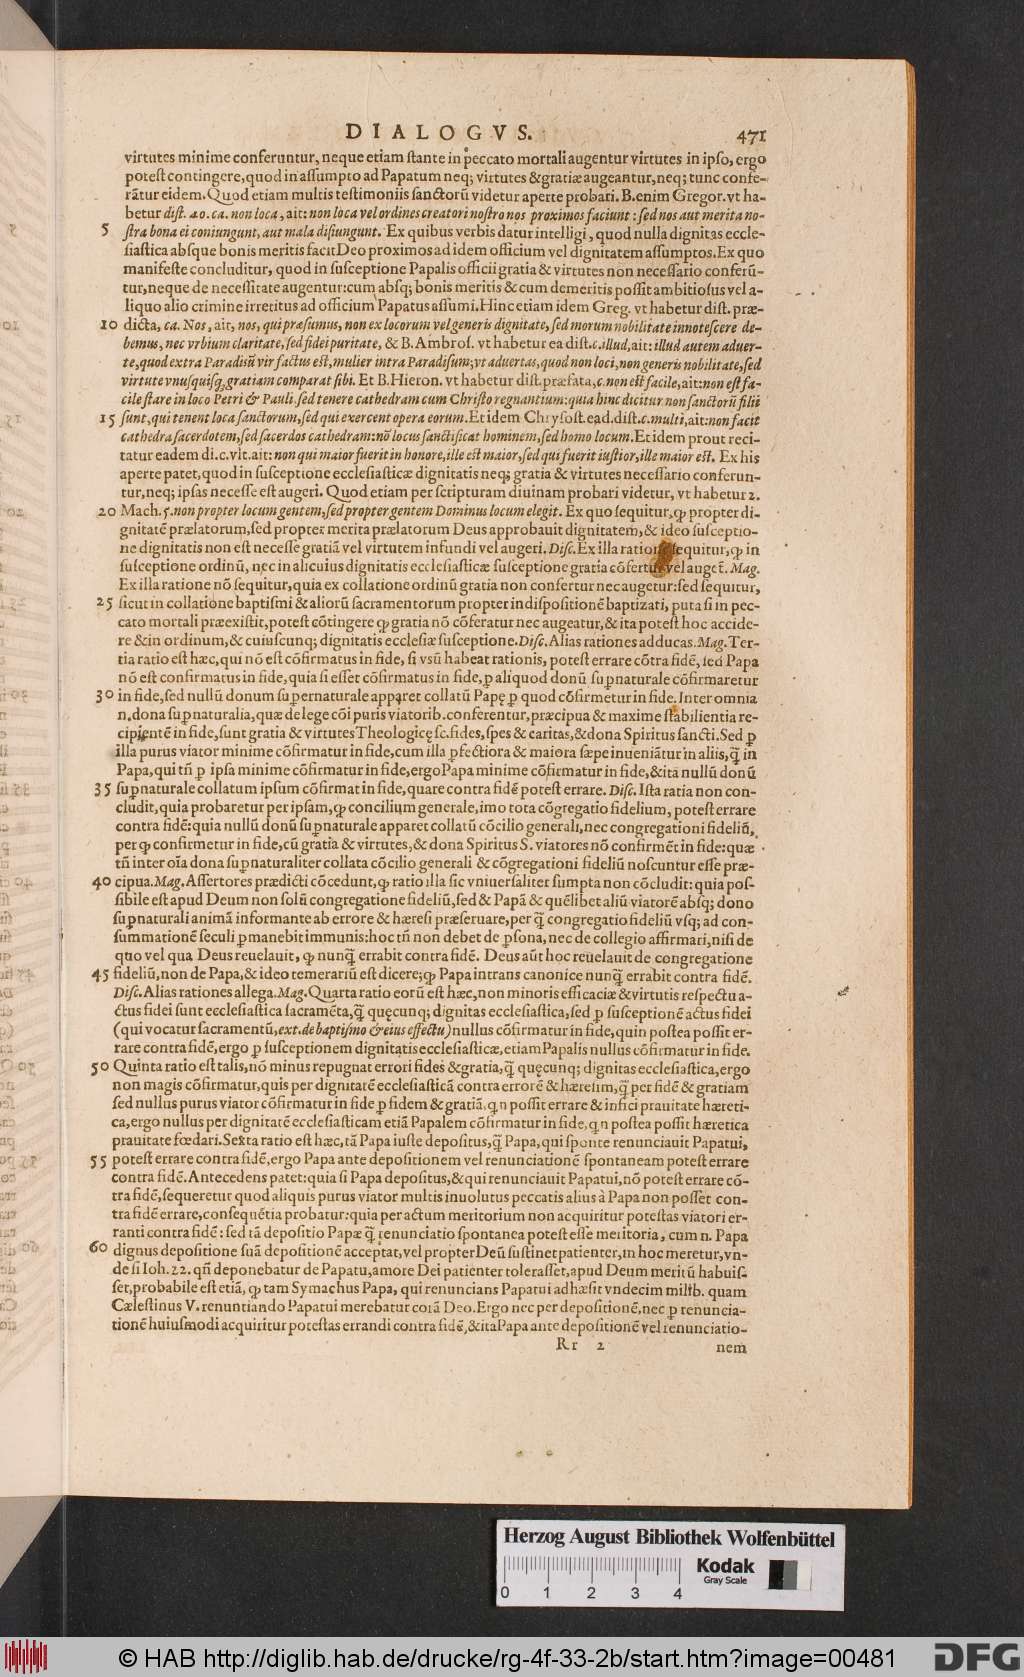 DIALOGVS. 471
virtutes minime conferuntur, neque etiam stante in peccato mortali augentur virtutes in ipso, ergo
potest contingere, quod in assumpto ad Papatum neq; virtutes & gratiæ augeantur, neq; tunc confe-
rãtur eidem. Quod etiam multis testimoniis sanctorũ videtur aperte probati. B. enim Gregor. vt ha-
betur dist. 40. ca. non loca, ait: non loca vel ordines creatori nostro nos proximos faciunt: sed nos aut merita no-
5 stra bona ei coniungunt, aut mala disiungunt. Ex quibus verbis datur intelligi, quod nulla dignitas eccle-
siastica absque bonis meritis facit Deo proximos ad idem officium vel dignitatem assumptos. Ex quo
manifeste concluditur, quod in susceptione Papalis officii gratia & virtutes non necessario conferũ-
tur, neque de necessitate augentur: cum absq; bonis meritis & cum demeritis possit ambitiosus vel a-
liquo alio crimine irretitus ad officium Papatus assumi. Hinc etiam idem Greg. vt habetur dist. præ-
10 dicta, ca. Nos, ait, nos, qui præsumus, non ex locorum vel generis dignitate, sed morum nobilitate innotescere de-
bemus, nec vrbium claritate, sed fidei puritate, & B. Ambros. vt habetur ea dist. c. illud, ait: illud autem aduer-
te, quod extra Paradisũ vir factus est, mulier intra Paradisum; vt aduertas, quod non loci, non generis nobilitate, sed
virtute vnusquisq; gratiam comparat sibi. Et B. Hieron. vt habetur dist. præfata, c. non est facile, ait: non est fa-
cile stare in loco Petri & Pauli. sed tenere cathedram cum Christo regnantium: quia hinc dicitur non sanctorũ filii
15 sunt, qui tenent loca sanctorum, sed qui exercent opera eorum. Et idem Chrysost. ead. dist. c. multi, ait: non facit
cathedra sacerdotem, sed sacerdos cathedram: nõ locus sanctificat hominem, sed homo locum. Et idem prout reci-
tatur eadem di. c. vlt. ait: non qui maior fuerit in honore, ille est maior, sed qui fuerit iustior, ille maior est. Ex his
aperte patet, quod in susceptione ecclesiasticæ dignitatis neq; gratia & virtutes necessario conferun-
tur, neq; ipsas necesse est augeri. Quod etiam per scripturam diuinam probari videtur, vt habetur 2.
20 Mach. 5. non propter locum gentem, sed propter gentem Dominus locum elegit. Ex quo sequitur, ꝙ propter di-
gnitatẽ prælatorum, sed propter merita prælatorum Deus approbauit dignitatem, & ideo susceptio-
ne dignitatis non est necesse gratiã vel virtutem infundi vel augeri. Disc. Ex illa ratione sequitur, ꝙ in
susceptione ordinũ, nec in alicuius dignitatis ecclesiasticæ susceptione gratia cõfertur vel auget̃. Mag.
Ex illa ratione nõ sequitur, quia ex collatione ordinũ gratia non confertur nec augetur: sed sequitur,
25 sicut in collatione baptismi & aliorũ sacramentorum propter indispositionẽ baptizati, puta si in pec-
cato mortali præexistit, potest cõtingere ꝙ gratia nõ cõferatur nec augeatur, & ita potest hoc accide-
re & in ordinum, & cuiuscunq; dignitatis ecclesiæ susceptione. Disc. Alias rationes adducas. Mag. Ter-
tia ratio est hæc, qui nõ est cõfirmatus in fide, si vsũ habeat rationis, potest errare cõtra fidẽ, sed Papa
nõ est confirmatus in fide, quia si esset cõfirmatus in fide, ꝑ aliquod donũ suꝑnaturale cõfirmaretur
30 in fide, sed nullũ donum supernaturale apparet collatũ Papę ꝑ quod cõfirmetur in fide. Inter omnia
n. dona suꝑnaturalia, quæ de lege cõi puris viatorib. conferentur, præcipua & maxime stabilientia re-
cipientẽ in fide, sunt gratia & virtutes Theologicę sc. fides, spes & caritas, & dona Spiritus sancti. Sed ꝑ
illa purus viator minime cõfirmatur in fide, cum illa ꝑfectiora & maiora sæpe inueniãtur in aliis, ꝗ̃ in
Papa, qui tñ ꝑ ipsa minime cõfirmatur in fide, ergo Papa minime cõfirmatur in fide, & ita nullũ donũ
35 suꝑnaturale collatum ipsum cõfirmat in fide, quare contra fidẽ potest errare. Disc. Ista ratia non con-
cludit, quia probaretur per ipsam, ꝙ concilium generale, imo tota cõgregatio fidelium, potest errare
contra fidẽ: quia nullũ donũ suꝑnaturale apparet collatũ cõcilio generali, nec congregationi fideliũ,
per ꝙ confirmetur in fide, cũ gratia & virtutes, & dona Spiritus S. viatores nõ confirmẽt in fide: quæ
tñ inter oĩa dona suꝑnaturaliter collata cõcilio generali & cõgregationi fideliũ noscuntur esse præ-
40 cipua. Mag. Assertores prædicti cõcedunt, ꝙ ratio illa sic vniuersaliter sumpta non cõcludit: quia pos-
sibile est apud Deum non solũ congregatione fideliũ, sed & Papã & quẽlibet aliũ viatorẽ absq; dono
suꝑnaturali animã informante ab errore & hæresi præseruare, per ꝗ̃ congregatio fideliũ vsq; ad con-
summationẽ seculi ꝑmanebit immunis: hoc tñ non debet de ꝑsona, nec de collegio affirmari, nisi de
quo vel qua Deus reuelauit, ꝙ nunꝗ̃ errabit contra fidẽ. Deus aũt hoc reuelauit de congregatione
45 fideliũ, non de Papa, & ideo temerariũ est dicere; ꝙ Papa intrans canonice nunꝗ̃ errabit contra fidẽ.
Disc. Alias rationes allega. Mag. Quarta ratio eorũ est hæc, non minoris efficaciæ & virtutis respectu a-
ctus fidei sunt ecclesiastica sacramẽta, ꝗ̃ quęcunq; dignitas ecclesiastica, sed ꝑ susceptionẽ actus fidei
(qui vocatur sacramentũ, ext. de baptismo & eius effectu) nullus cõfirmatur in fide, quin postea possit er-
rare contra fidẽ, ergo ꝑ susceptionem dignitatis ecclesiasticæ, etiam Papalis nullus cõfirmatur in fide.
50 Quinta ratio est talis, nõ minus repugnat errori fides & gratia, ꝗ̃ quęcunq; dignitas ecclesiastica, ergo
non magis cõfirmatur, quis per dignitatẽ ecclesiasticã contra errorẽ & hæresim, ꝗ̃ per fidẽ & gratiam
sed nullus purus viator cõfirmatur in fide ꝑ fidem & gratiã, q̣n possit errare & infici prauitate hæreti-
ca, ergo nullus per dignitatẽ ecclesiasticam etiã Papalem cõfirmatur in fide, q̣n postea possit hæretica
prauitate fœdari. Sexta ratio est hæc, tã Papa iuste depositus, ꝗ̃ Papa, qui sponte renunciauit Papatui,
55 potest errare contra fidẽ, ergo Papa ante depositionem vel renunciationẽ spontaneam potest errare
contra fidẽ. Antecedens patet: quia si Papa depositus, & qui renunciauit Papatui, nõ potest errare cõ-
tra fidẽ, sequeretur quod aliquis purus viator multis inuolutus peccatis alius à Papa non posset con-
tra fidẽ errare, consequẽtia probatur: quia per actum meritorium non acquiritur potestas viatori er-
ranti contra fidẽ: sed tã depositio Papæ ꝗ̃ renunciatio spontanea potest esse meritoria, cum n. Papa
60 dignus depositione suã depositionẽ acceptat, vel propter Deũ sustinet patienter, in hoc meretur, vn-
de si Ioh. 22. qñ deponebatur de Papatu, amore Dei patienter tolerasset, apud Deum meritũ habuis-
set, probabile est etiã, ꝙ tam Symachus Papa, qui renuncians Papatui adhæsit vndecim millb. quam
Cælestinus V. renuntiando Papatui merebatur corã Deo. Ergo nec per depositionẽ, nec ꝑ renuncia-
tionẽ huiusmodi acquiritur potestas errandi contra fidẽ, & ita Papa ante depositionẽ vel renunciatio-
Rr 2 nem
Herzog August Bibliothek Wolfenbüttel
Kodak
Gray Scale
0 1 2 3 4
© HAB http://diglib.hab.de/drucke/rg-4f-33-2b/start.htm?image=00481
DFG